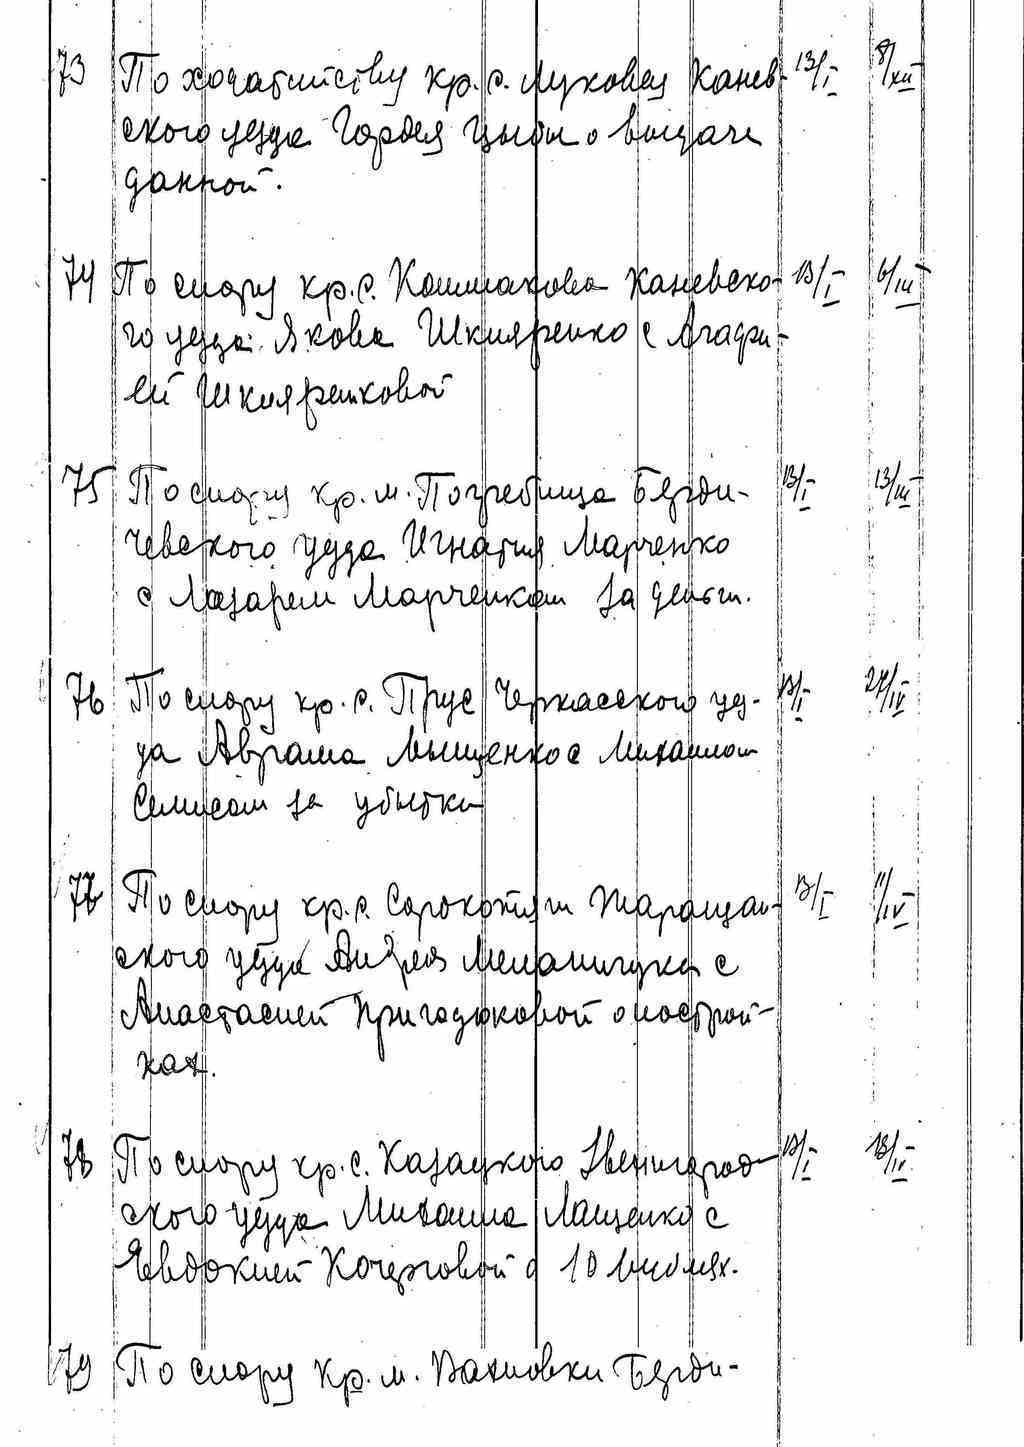 73 По ходатайству кр. с. Луковец Канев- 13/I 8/XII
ского уезда Гордея Цыбы о выдаче
данной.
74 По спору кр. с. Кошмакова Каневско- 13/I 6/III
го уезда Якова Шкияренко с Агафи-
ей Шкияренковой
75 По спору кр. м. Погребища Берди- 13/I 13/III
чевского уезда Игнатия Марченко
с Лазарем Марченком за деньги.
76 По спору кр. с. Прус Черкасского уез- 13/I 27/IV
да Аврама Мыщенко с Михаилом
Семисом за убытки
77 По спору кр. с. Сорокотяги Таращан- 13/I 11/IV
ского уезда Андрея Меланичука с
Анастасией Пригодюковой о построй-
ках.
78 По спору кр. с. Казацкого Звенигород- 13/I 18/IV
ского уезда Михаила Лащенко с
Евдокией Кочерговой о 10 рублях.
79 По спору кр. м. Вахновки Берди-